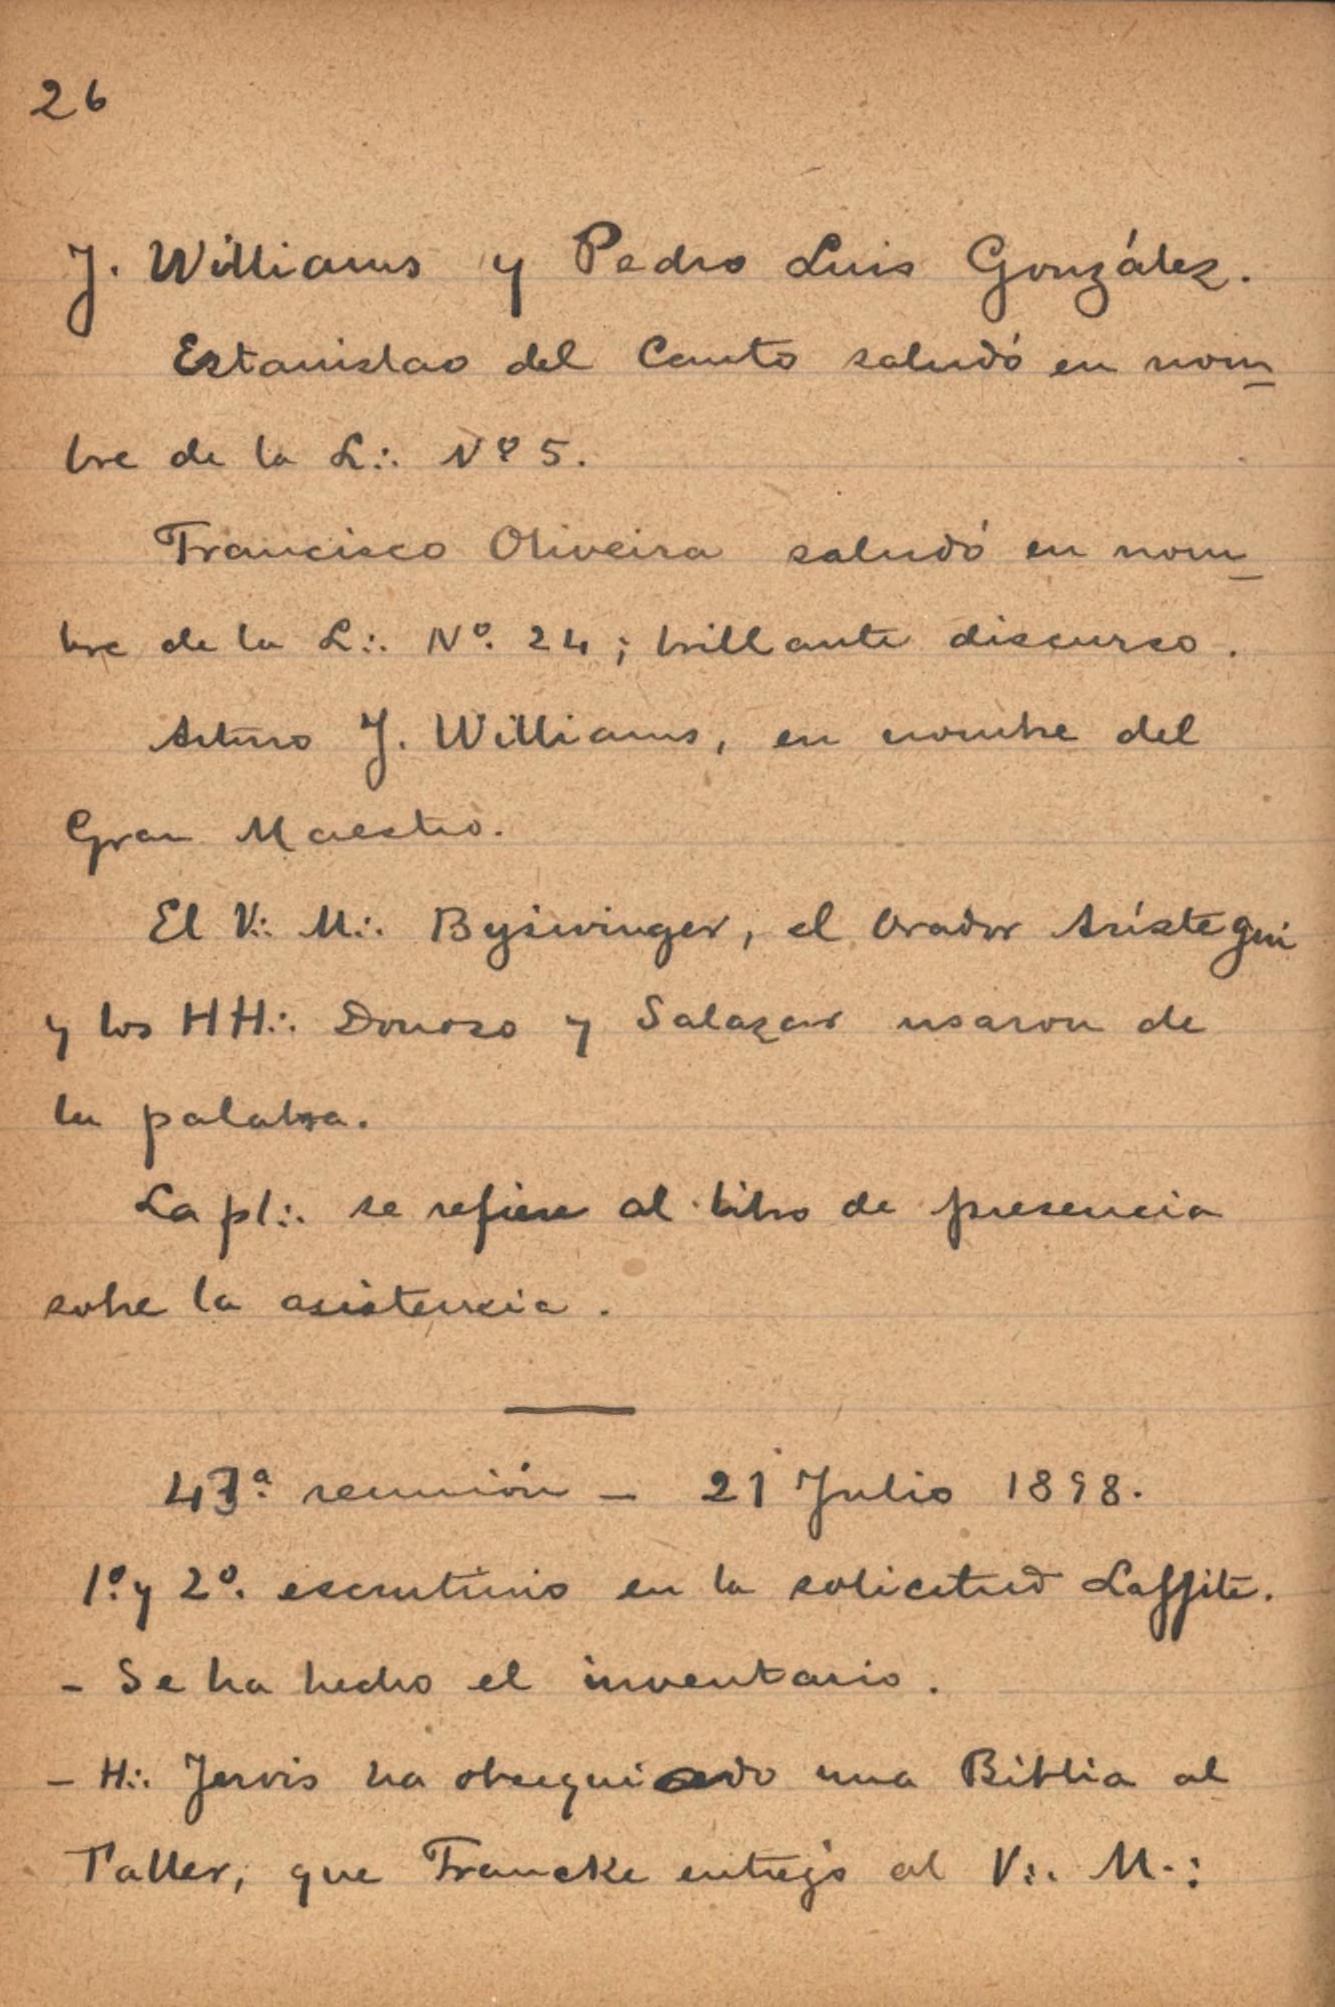 26
J. Williams y Pedro Luis González.
Estanislao del Canto saludó en nom-
bre de la L∴ Nº 5.
Francisco Oliveira saludó en nom-
bre de la L∴ Nº. 24; brillante discurso.
Arturo J. Williams, en nombre del
Gran Maestro.
El V∴ M∴ Bysivinger, el Orador Arístegui
y los HH∴ Donoso y Salazar usaron de
la palabra.
La pl∴ se refiere al libro de presencia
sobre la asistencia.
43ª reunión – 21 Julio 1898.
1º. y 2º. escrutinio en la solicitud Laffite.
– Se ha hecho el inventario.
– H∴ Jervis ha obsequiado una Biblia al
Taller, que Francke entregó al V∴ M∴